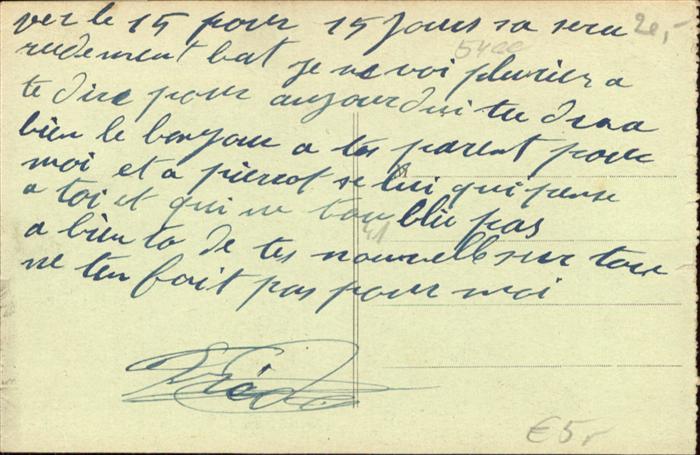 ver le 15 pour 15 jours sa sera 20,-
rudement bat je ne voi plu rien a 5400
te dire pour aujourdui tu dira
bien le bonjour a tes parent pour
moi et a pierrot se lui qui pense
a toi et qui ne tou blie pas
a bien to de tes nouvelle surtou
ne ten fait pas pour moi
€5,-